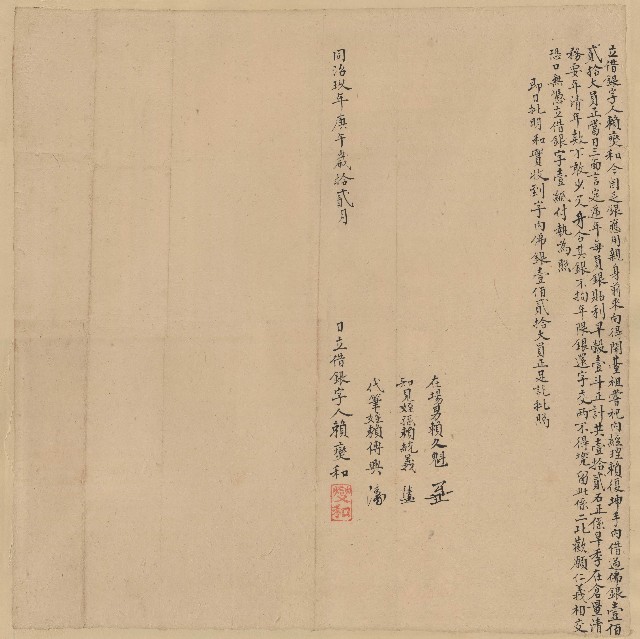 立借銀字人賴燮和今因乏銀應用親身前來向得開基祖嘗祀內經理賴復坤手內借過佛銀壹佰
貳拾大員正當日三面言定遞年每員銀貼利早穀壹斗正計共壹拾貳石正係早季在倉量清
務要年清年款不敢少欠升合其銀不拘年限銀還字交兩不得覊留此係二比歡願仁義相交
恐口無憑立借銀字壹紙付執為照
即日批明和實收到字內佛銀壹佰貳拾大員正足訖批照
在場男賴久魁
知見姪孫賴統義
代筆姪賴傳興
同治玖年庚午歲拾貳月 日立借銀字人賴燮和
燮和